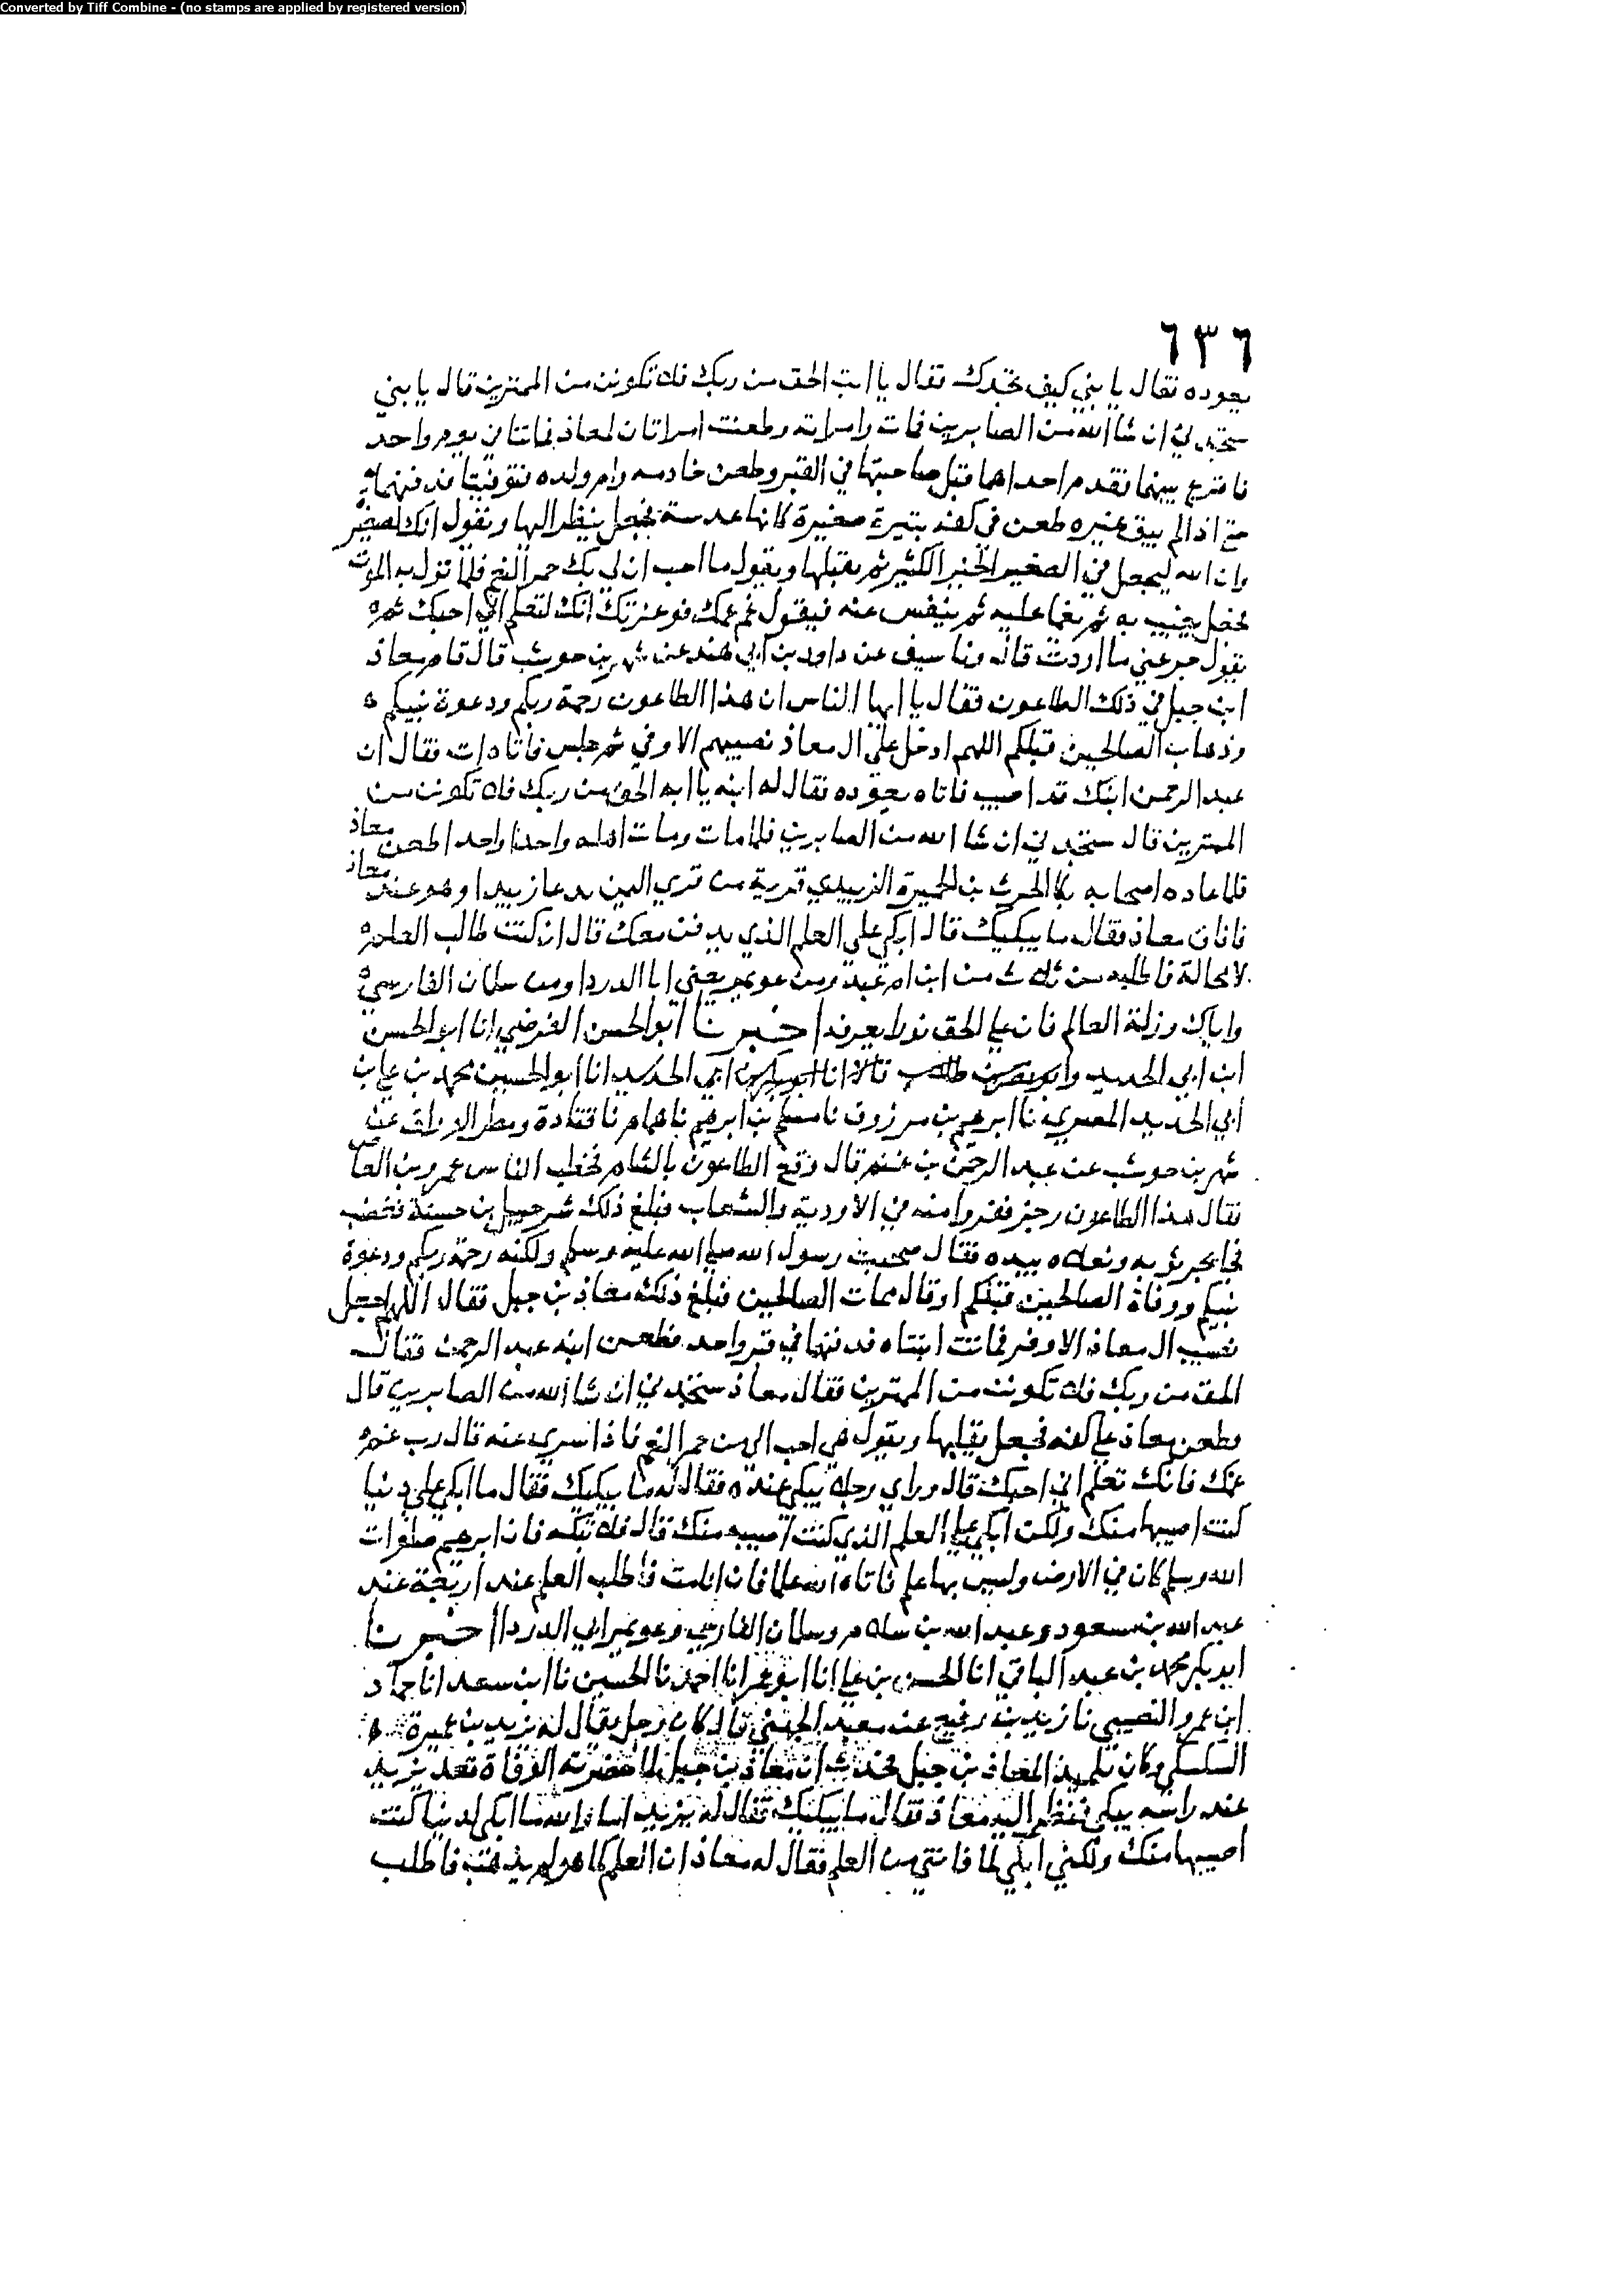 Converted by Tiff Combine - (no stamps are applied by registered version)
٦٣٦
يعوده فقال يا بني كيف تجدك فقال يا ابت الحق من ربك فلا تكونن من الممترين قال يا بني
ستجدني ان شا الله من الصابرين فمات وامراته وطعنت امراتان لمعاذ فماتتا في يوم واحد
فاقرع بينهما فقدم احداهما قبل صاحبتها في القبر وطعن خادمه وام ولده فتوفيتا فدفنهما
حتى اذا لم يبق غيره طعن في كفه بثيرة صغيرة كانها عدسة فجعل ينظر اليها ويقول انك لصغيرة
وان الله ليجعل في الصغير الخير الكثير ثم يقبلها ويقول ما احب ان لي بك حمر النعم فلما نزل به الموت
فجعل يغيب به ثم يغما عليه ثم ينفس عنه فيقول غم غمك فوعزتك انك لتعلم اني احبك ثم
يقول جرعني ما اردت قال ونا سيف عن داود بن ابي هند عن شهر بن حوشب قال قام معاذ
ابن جبل في ذلك الطاعون فقال يا ايها الناس ان هذا الطاعون رحمة ربكم ودعوة نبيكم
وذهاب الصالحين قبلكم اللهم ادخل على ال معاذ نصيبهم الاوفي ثم جلس فاتاه ات فقال ان
عبد الرحمن ابنك قد اصيب فاتاه يعوده فقال له ابنه يا ابه الحق من ربك فلا تكونن من
الممترين قال ستجدني ان شا الله من الصابرين فلما مات ومات اهله واحدا واحدا طعن معاذ
فلما عاده اصحابه بكا الحرث بن عميرة الزبيدي قرية من قري اليمن يدعا زبيدا وهو عند معاذ
فافاق معاذ فقال ما يبكيك قال ابكي على العلم الذي يدفن معك قال ان كنت طالب العلم
لا محالة فاطلبه من ثلاث من ابن ام عبد ومن عويمر يعني ابا الدردا ومن سلمان الفارسي
واياك وزلة العالم فان على الحق نورا يعرف اخبرنا ابو الحسن الفرضي انا ابو الحسن
ابن ابي الحديد وابو نصر بن طلاب قالا انا ابو بكر بن ابي الحديد انا ابو الحسين محمد بن علي بن
ابي الحديد المصري نا ابرهيم بن مرزوق نا مسلم بن ابرهيم نا همام نا قتادة ومطر الوراق عن
شهر بن حوشب عن عبد الرحمن بن غنم قال وقع الطاعون بالشام فخطب الناس عمرو بن العاص
فقال هذا الطاعون رجز ففروا منه في الاودية والشعاب فبلغ ذلك شرحبيل بن حسنة فغضب
فجا يجر ثوبه ونعلاه بيده فقال صحبت رسول الله صلى الله عليه وسلم ولكنه رحمة ربكم ودعوة
نبيكم ووفاة الصالحين قبلكم او قال ممات الصالحين فبلغ ذلك معاذ بن جبل فقال اللهم اجعل
نصيب ال معاذ الاوفر فماتت ابنتاه فدفنهما في قبر واحد فطعن ابنه عبد الرحمن فقال
الحق من ربك فلا تكونن من الممترين فقال معاذ ستجدني ان شا الله من الصابرين قال
وطعن معاذ على كفه فجعل يقلبها ويقول هي احب الي من حمر النعم فاذا سري عنه قال رب غم
غمك فانك تعلم اني احبك قال وراي رجلا يبكي عنده فقال له ما يبكيك فقال ما ابكي على دنيا
كنت اصيبها منك ولكن ابكي على العلم الذي كنت اصيبه منك قال فلا تبكه فان ابرهيم صلوات
الله وسلم كان في الارض وليس بها علم فاتاه الله علما فان انا مت فاطلب العلم عند اربعة عند
عبد الله بن مسعود وعبد الله بن سلام وسلمان الفارسي وعويمر ابي الدردا اخبرنا
ابو بكر محمد بن عبد الباقي انا الحسن بن علي انا ابو عمر انا احمد نا الحسين نا ابن سعد انا حماد
ابن عمرو النصيبي نا زيد بن رفيع عن معبد الجهني قال كان رجل يقال له يزيد بن عميرة
السكسكي وكان تلميذا لمعاذ بن جبل فحدث ان معاذ بن جبل لما حضرته الوفاة قعد يزيد
عند راسه يبكي فنظر اليه معاذ فقال ما يبكيك فقال له يزيد اما والله ما ابكي لدنيا كنت
اصيبها منك ولكني ابكي لما فاتني من العلم فقال له معاذ ان العلم كما هو لم يذهب فاطلب